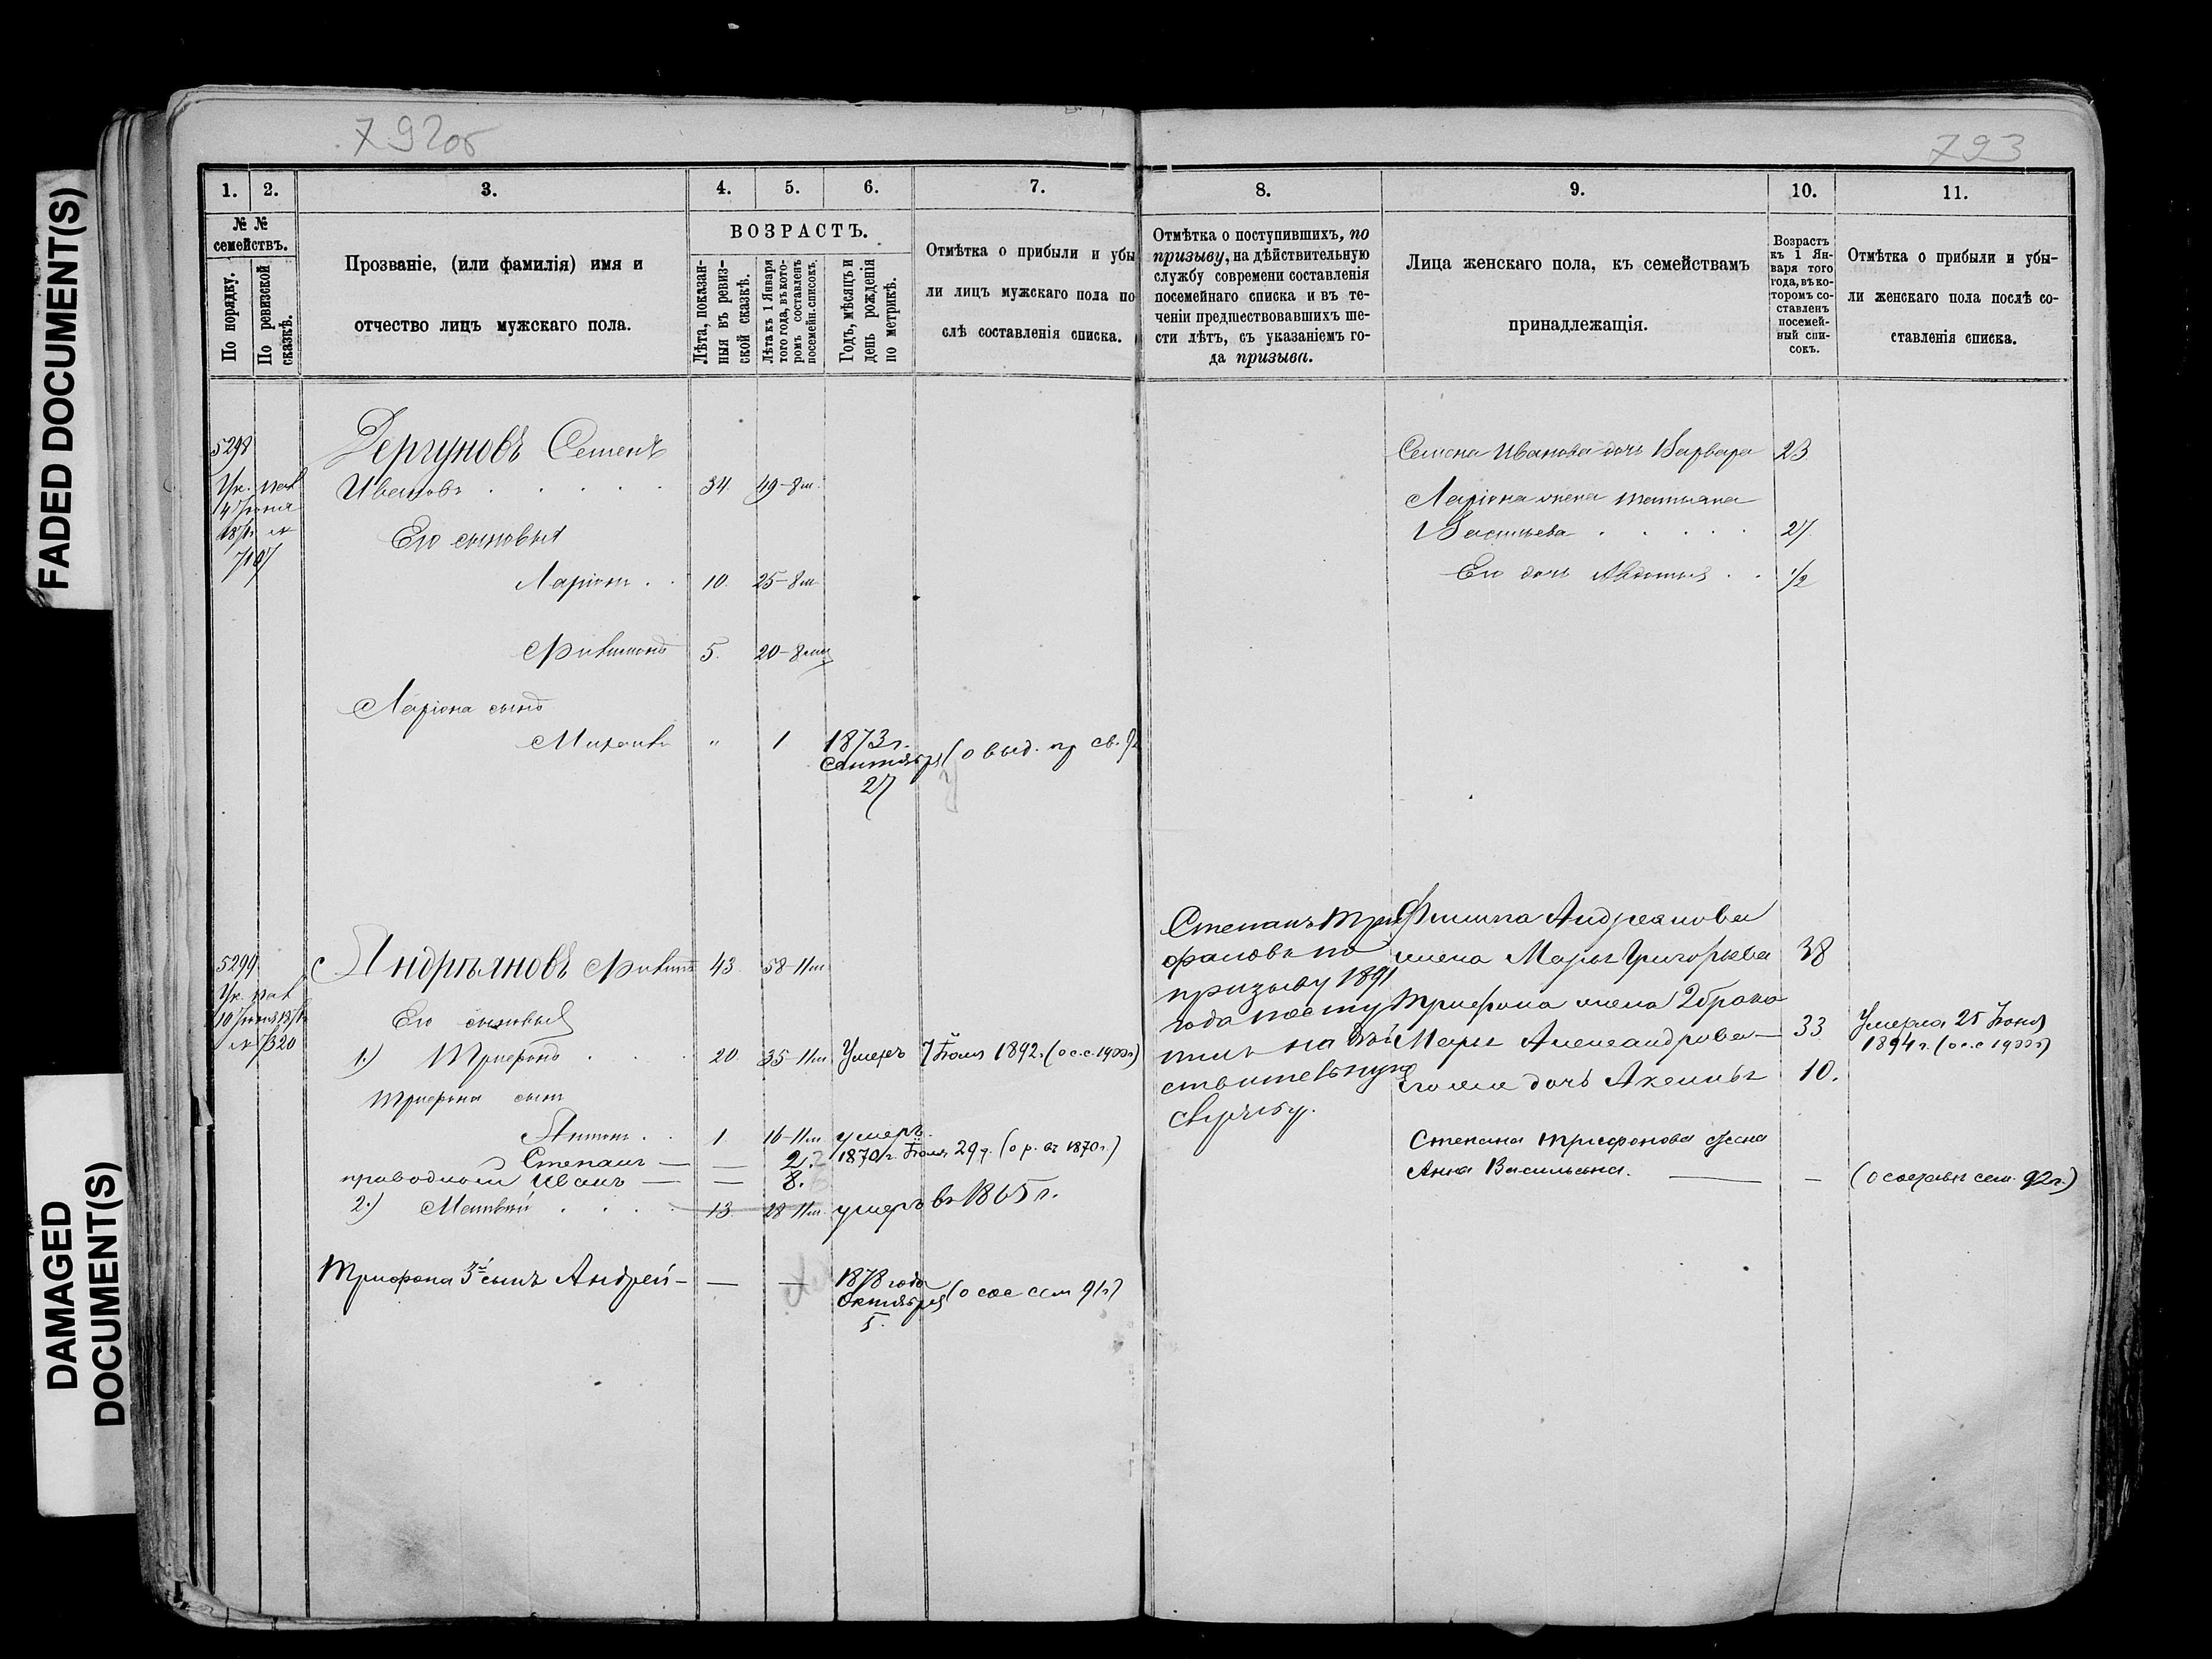 FADED DOCUMENT(S)
DAMAGED
DOCUMENT(S)
792об
1. 2. 3. 4. 5. 6. 7.
№ №
семействъ.
По порядку.
По ревизской
сказкѣ.
Прозваніе, (или фамилія) имя и
отчество лицъ мужскаго пола.
ВОЗРАСТЪ.
Лѣта, показан-
ныя въ ревиз-
ской сказкѣ.
Лѣта къ 1 Января
того года, въ кото-
ромъ составленъ
посемейн. списокъ.
Годъ, мѣсяцъ и
день рожденія
по метрикѣ.
Отмѣтка о прибыли и убы
ли лицъ мужскаго пола по
слѣ составленія списка.
5298
Дергуновъ Семенъ
Ивановъ 34 49-8м.
Его сыновья
Ларіонъ 10. 25-8м
5. 20-8
Ларіона сынъ
Михаилъ " 1 1873 г.
Сентября
27
5299
Андрѣяновъ 43 58-11м
Его сыновья
1.) Трифонъ 20. 35-11м Умеръ 7 Іюля 1892. (о с.с. 1900г)
Трифона сынъ
Антонъ 1 16-11м умеръ.
Степанъ — — 2. 1870 г. Іюля 29 д. (о р. въ 1870 г.)
Иванъ — — 8.
2.) Матвѣй 13. 28-11м. умеръ въ 1865 г.
Трифона 3й сынъ Андрей — — — 1878 года
Октября (о сос сем 91г)
5.
793
8. 9. 10. 11.
Отмѣтка о поступившихъ, по
призыву, на дѣйствительную
службу современи составленія
посемейнаго списка и въ те-
ченіи предшествовавшихъ ше-
сти лѣтъ, съ указаніемъ го-
да призыва.
Лица женскаго пола, къ семействамъ
принадлежащія.
Возрастъ
къ 1 Ян-
варя того
года, въ ко-
торомъ со-
ставленъ
посемей-
ный спи-
сокъ.
Отмѣтка о прибыли и убы-
ли женскаго пола послѣ со-
ставленія списка.
Семена Иванова дочь Варвара 23
Ларіона жена Татьяна
Васильева 27
Его дочь Авдотья 1/2
Степанъ Три
фоновъ по
призыву 1891
года посту
пилъ на дѣй
ствительную
службу.
Филипа Андреянова
жена Марья Григорьева 38
Трифона жена 2 брака
Марья Александрова — 33
дочь Аксинья 10.
Умерла 25 Іюня
1894 г. (о с.с. 1900г)
Степана Трифонова жена
Анна Васильевна. — — (о составѣ сем. 92 г.)